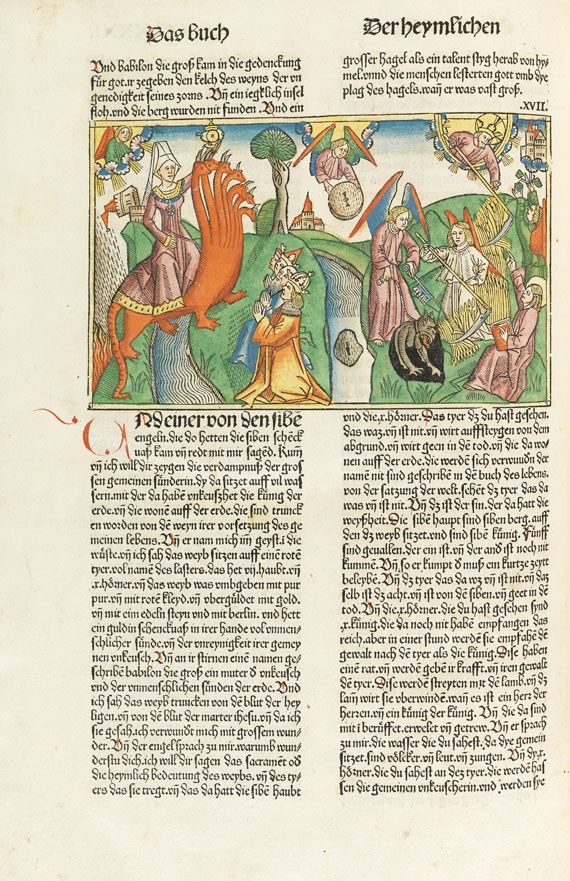 Das buch
Der heymlichen
Vnd babilon die groß kam in die gedenckung
für got.ir zegeben den kelch des weyns der vn
genedigkeit seines zorns. Vn̄ ein iegklich insel
floh.vnd die berg wurden nit funden. Vnd ein
grosser hagel als ein talent styg herab von hy/
mel.vnnd die menschen lesterten gott vmb dye
plag des hagels.wañ er was vast groß.
.XVII.
Nd einer von den sibē
engeln.die do hetten die siben schēck
uaß kam vn̄ redt mit mir sagēd. Kum̄
vn̄ ich will dir zeygen die verdampnuß der gros
sen gemeinen sünderin.dy da sitzet auff vil was
sern.mit der da habē vnkeußhet die künig der
erde.vn̄ die wonē auff der erde.die sind trunck
en worden von dē weyn irer vorsetzung des ge
meinen lebens. Vn̄ er nam mich im̄ geyst.i die
wüste.vn̄ ich sah das weyb sitzen auff einē rotē
tyer.vol namē des lasters.das het vij.haubt.vn̄
x.hörner.vn̄ das weyb was vmbgeben mit pur
pur.vn̄ mit rotē kleyd.vn̄ vbergüldet mit gold.
vn̄ mit eim edeln steyn vnd mit berlin. vnd hett
ein guldin schenckuaß in irer hande vol vnmen/
schlicher sünde.vn̄ der vnreynigkeit irer gemey
nen vnkeusch. Vn̄ an ir stirnen einē namen ge/
schribē babilon die groß ein muter d vnkeusch
vnd der vnmenschlichen sünden der erde. Vnd
ich sah das weyb truncken von dē blut der hey
ligen.vn̄ von dē blut der marter ihesu.vn̄ da ich
sie gesah.ich verwundt mich mit grossem wun/
der. Vn̄ der engel sprach zu mir.warumb wun/
derstu dich.ich will dir sagen das sacramēt od
die heymlich bedeutung des weybs. vn̄ des ty/
ers das sie tregt.vn̄ das da hatt die sibē haubt
vnd die.x.hörner. Das tyer dz du hast gesehen.
das waz.vn̄ ist nit.vn̄ wirt auffsteygen von dem
abgrund.vn̄ wirt geen in den tod.vn̄ die da wo/
nen auff der erde.die werdē sich verwundn der
namē nit sind geschribē in dē buch des lebens.
von der satzung der welt.schēt dz tyer das da
was vn̄ ist nit. Vn̄ dz ist der sin.der da hatt die
weyßheit. Die sibē haupt sind siben berg. auff
den dz weyb sitzet.vnd sind sibē künig. Fünff
sind geuallen.der ein ist.vn̄ der and ist noch nit
kummen. Vn̄.so er kumpt d muß ein kurtze zeytt
beleybē. Vn̄ dz tyer das da wz vn̄ ist nit.vn̄ daz
selb ist dz acht.vn̄ ist von dē siben.vn̄ geet in dē
tod. Vn̄ die.x.hörner.die du hast gesehen synd
.x.künig.die da noch nit habē empfangen das
reich.aber in einer stund werdē sie empfahē dē
gewalt nach dē tyer als die künig. Dise haben
einē rat.vn̄ werdē gebē ir krafft.vn̄ iren gewalt
dē tyer. Dise werdē streyten mit dē lamb.vn̄ dz
lam̄ wirt sie vberwindē.wañ es ist ein herr der
herren.vn̄ ein künig der künig. Vn̄ die da sind
mit ī berüffet.erwelet vn̄ getrew. Vn̄ er sprach
zu mir.die wasser die du sahest.da dye gemein
sitzet.sind völcker.vn̄ leut.vn̄ zungen. Vn̄ dy.x.
hörner.die du sahest an dez tyer.die werdē has
sen die gemeinen vnkeuscherin.vnd werden sye